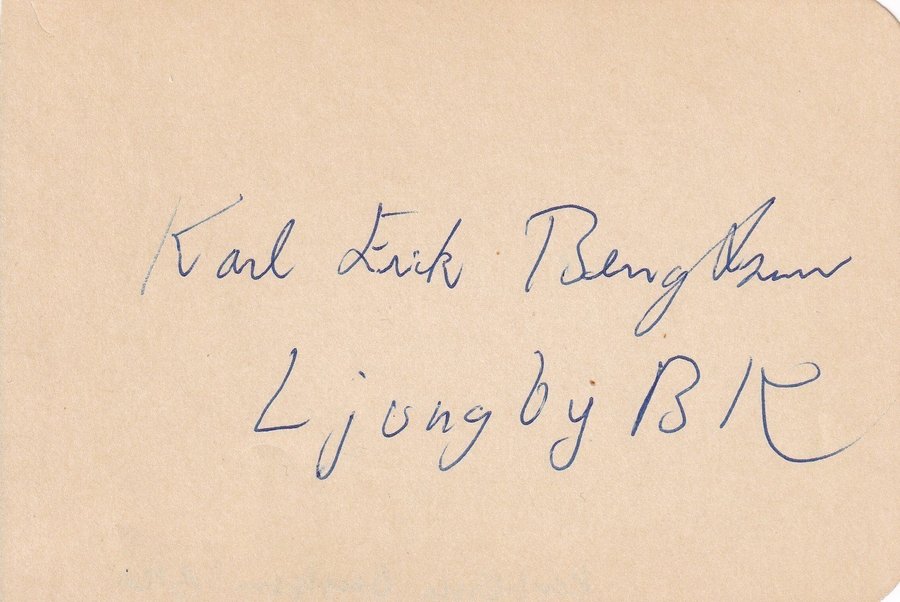 Karl Erik Bengtsson
Ljungby BK